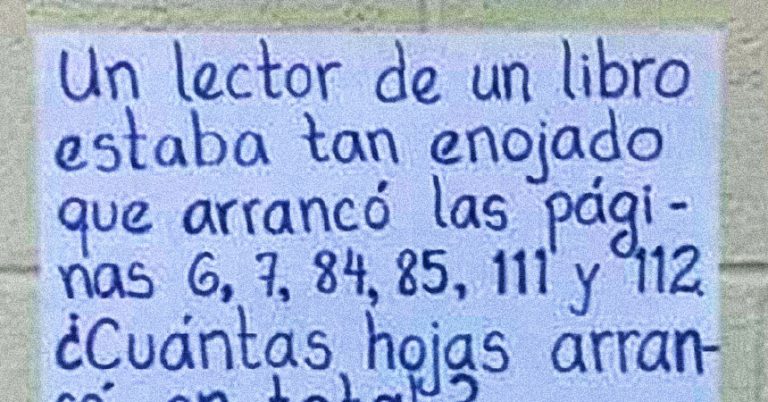 Un lector de un libro
estaba tan enojado
que arrancó las pági-
nas 6, 7, 84, 85, 111 y 112
¿Cuántas hojas arran-
có en total?